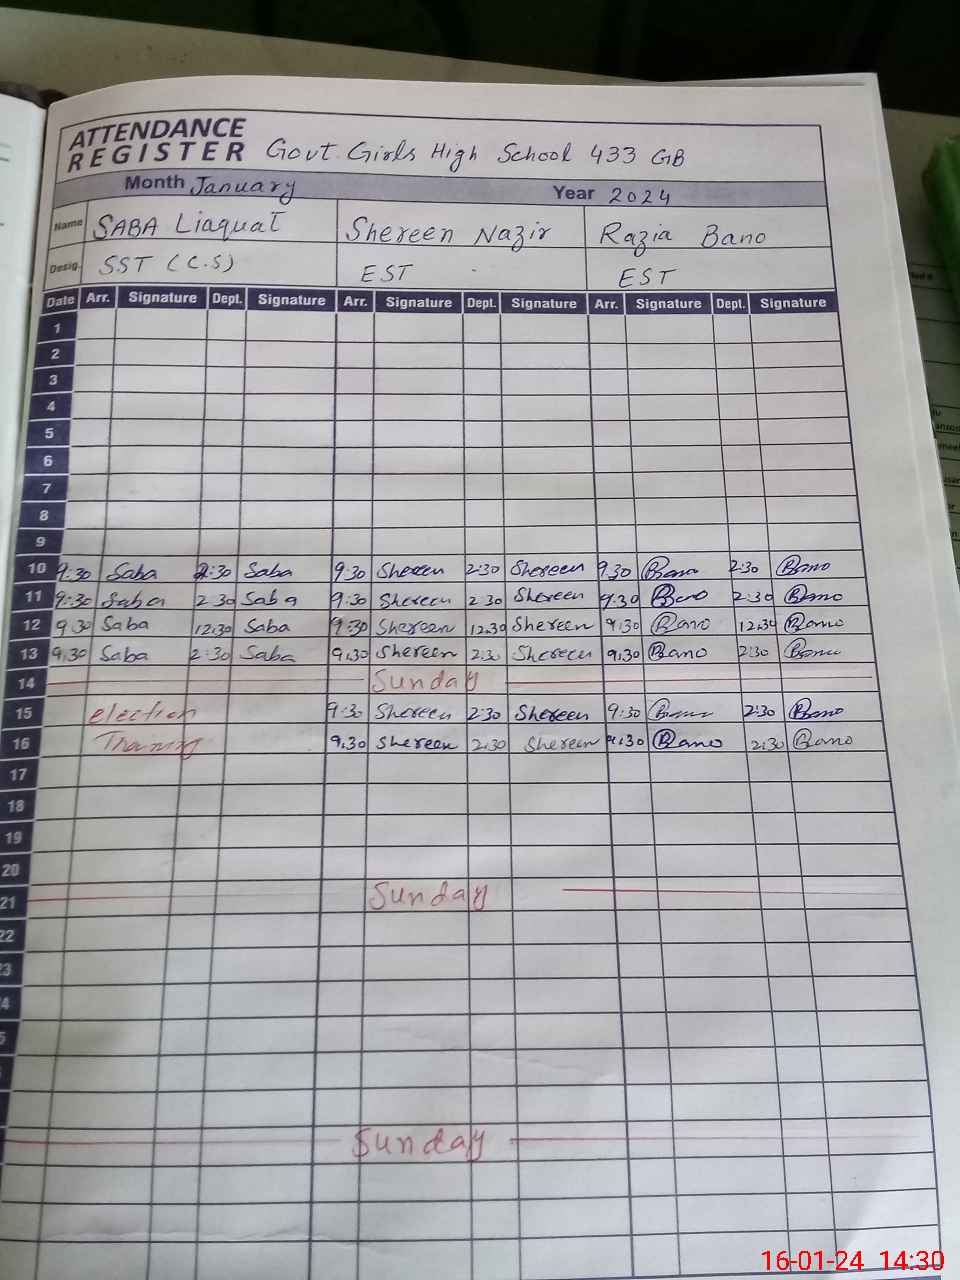 ATTENDANCE
REGISTER Govt. Girls High School 433 GB
Month January Year 2024
Name SABA Liaquat Shereen Nazir Razia Bano
Desig. SST (C.S) EST EST
Date Arr. Signature Dept. Signature Arr. Signature Dept. Signature Arr. Signature Dept. Signature
1
2
3
4
5
6
7
8
9
10 9:30 Saba 2:30 Saba 9:30 Shereen 2:30 Shereen 9:30 Bano 2:30 Bano
11 9:30 Saba 2:30 Saba 9:30 Shereen 2:30 Shereen 9:30 Bano 2:30 Bano
12 9:30 Saba 12:30 Saba 9:30 Shereen 12:30 Shereen 9:30 Bano 12:30 Bano
13 9:30 Saba 2:30 Saba 9:30 Shereen 2:30 Shereen 9:30 Bano 2:30 Bano
14 Sunday
15 election 9:30 Shereen 2:30 Shereen 9:30 Bano 2:30 Bano
16 Training 9:30 Shereen 2:30 Shereen 9:30 Bano 2:30 Bano
17
18
19
20
21 Sunday
22
Sunday
16-01-24 14:30